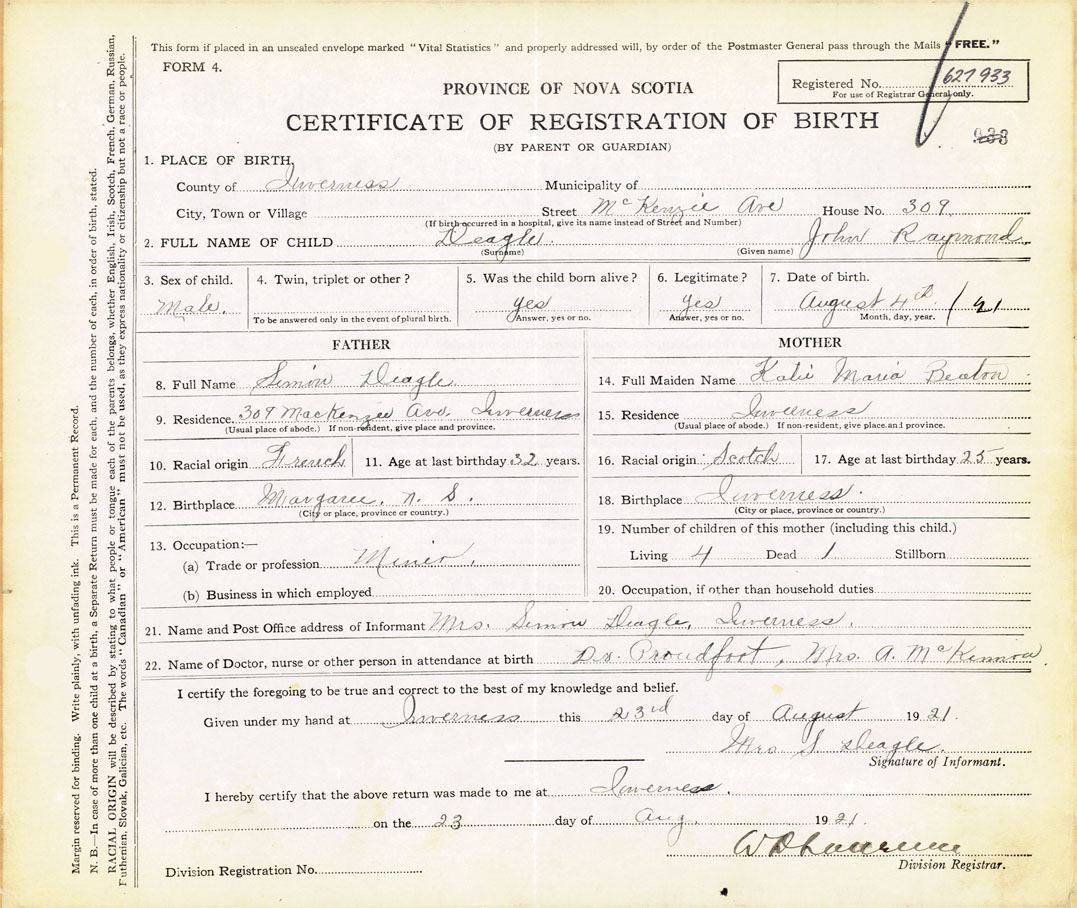 This form if placed in an unsealed envelope marked "Vital Statistics" and properly addressed will, by order of the Postmaster General pass through the Mails "FREE."
FORM 4.
Registered No. 627933
For use of Registrar General only.
PROVINCE OF NOVA SCOTIA
CERTIFICATE OF REGISTRATION OF BIRTH
(BY PARENT OR GUARDIAN)
1. PLACE OF BIRTH,
County of Inverness Municipality of
City, Town or Village Street McKenzie Ave House No. 309
(If birth occurred in a hospital, give its name instead of Street and Number)
2. FULL NAME OF CHILD Deagle. John Raymond
(Surname) (Given name)
3. Sex of child. 4. Twin, triplet or other? 5. Was the child born alive? 6. Legitimate? 7. Date of birth.
Male. yes yes August 4th /21
To be answered only in the event of plural birth. Answer, yes or no. Answer, yes or no. Month, day, year.
FATHER
8. Full Name Simon Deagle
9. Residence. 309 MacKenzie Ave. Inverness
(Usual place of abode.) If non-resident, give place and province.
10. Racial origin French 11. Age at last birthday 32 years.
12. Birthplace Margaree, N. S.
(City or place, province or country.)
13. Occupation:—
(a) Trade or profession Miner.
(b) Business in which employed
MOTHER
14. Full Maiden Name Katie Maria Beaton
15. Residence Inverness
(Usual place of abode.) If non-resident, give place and province.
16. Racial origin Scotch 17. Age at last birthday 25 years.
18. Birthplace Inverness.
(City or place, province or country.)
19. Number of children of this mother (including this child.)
Living 4 Dead 1 Stillborn
20. Occupation, if other than household duties
21. Name and Post Office address of Informant Mrs. Simon Deagle, Inverness.
22. Name of Doctor, nurse or other person in attendance at birth Dr. Proudfoot, Mrs. A. McKinnon
I certify the foregoing to be true and correct to the best of my knowledge and belief.
Given under my hand at Inverness this 23rd day of August 1921.
Mrs S Deagle.
Signature of Informant.
I hereby certify that the above return was made to me at Inverness.
on the 23 day of Aug. 1921
Division Registrar.
Division Registration No.
Margin reserved for binding. Write plainly, with unfading ink. This is a Permanent Record.
N. B.—In case of more than one child at a birth, a Separate Return must be made for each, and the number of each, in order of birth, stated.
RACIAL ORIGIN will be described by stating to what people or tongue each of the parents belongs, whether English, Irish, Scotch, French, German, Russian,
Futhenian, Slovak, Galician, etc. The words "Canadian" or "American" must not be used, as they express nationality or citizenship but not a race or people.